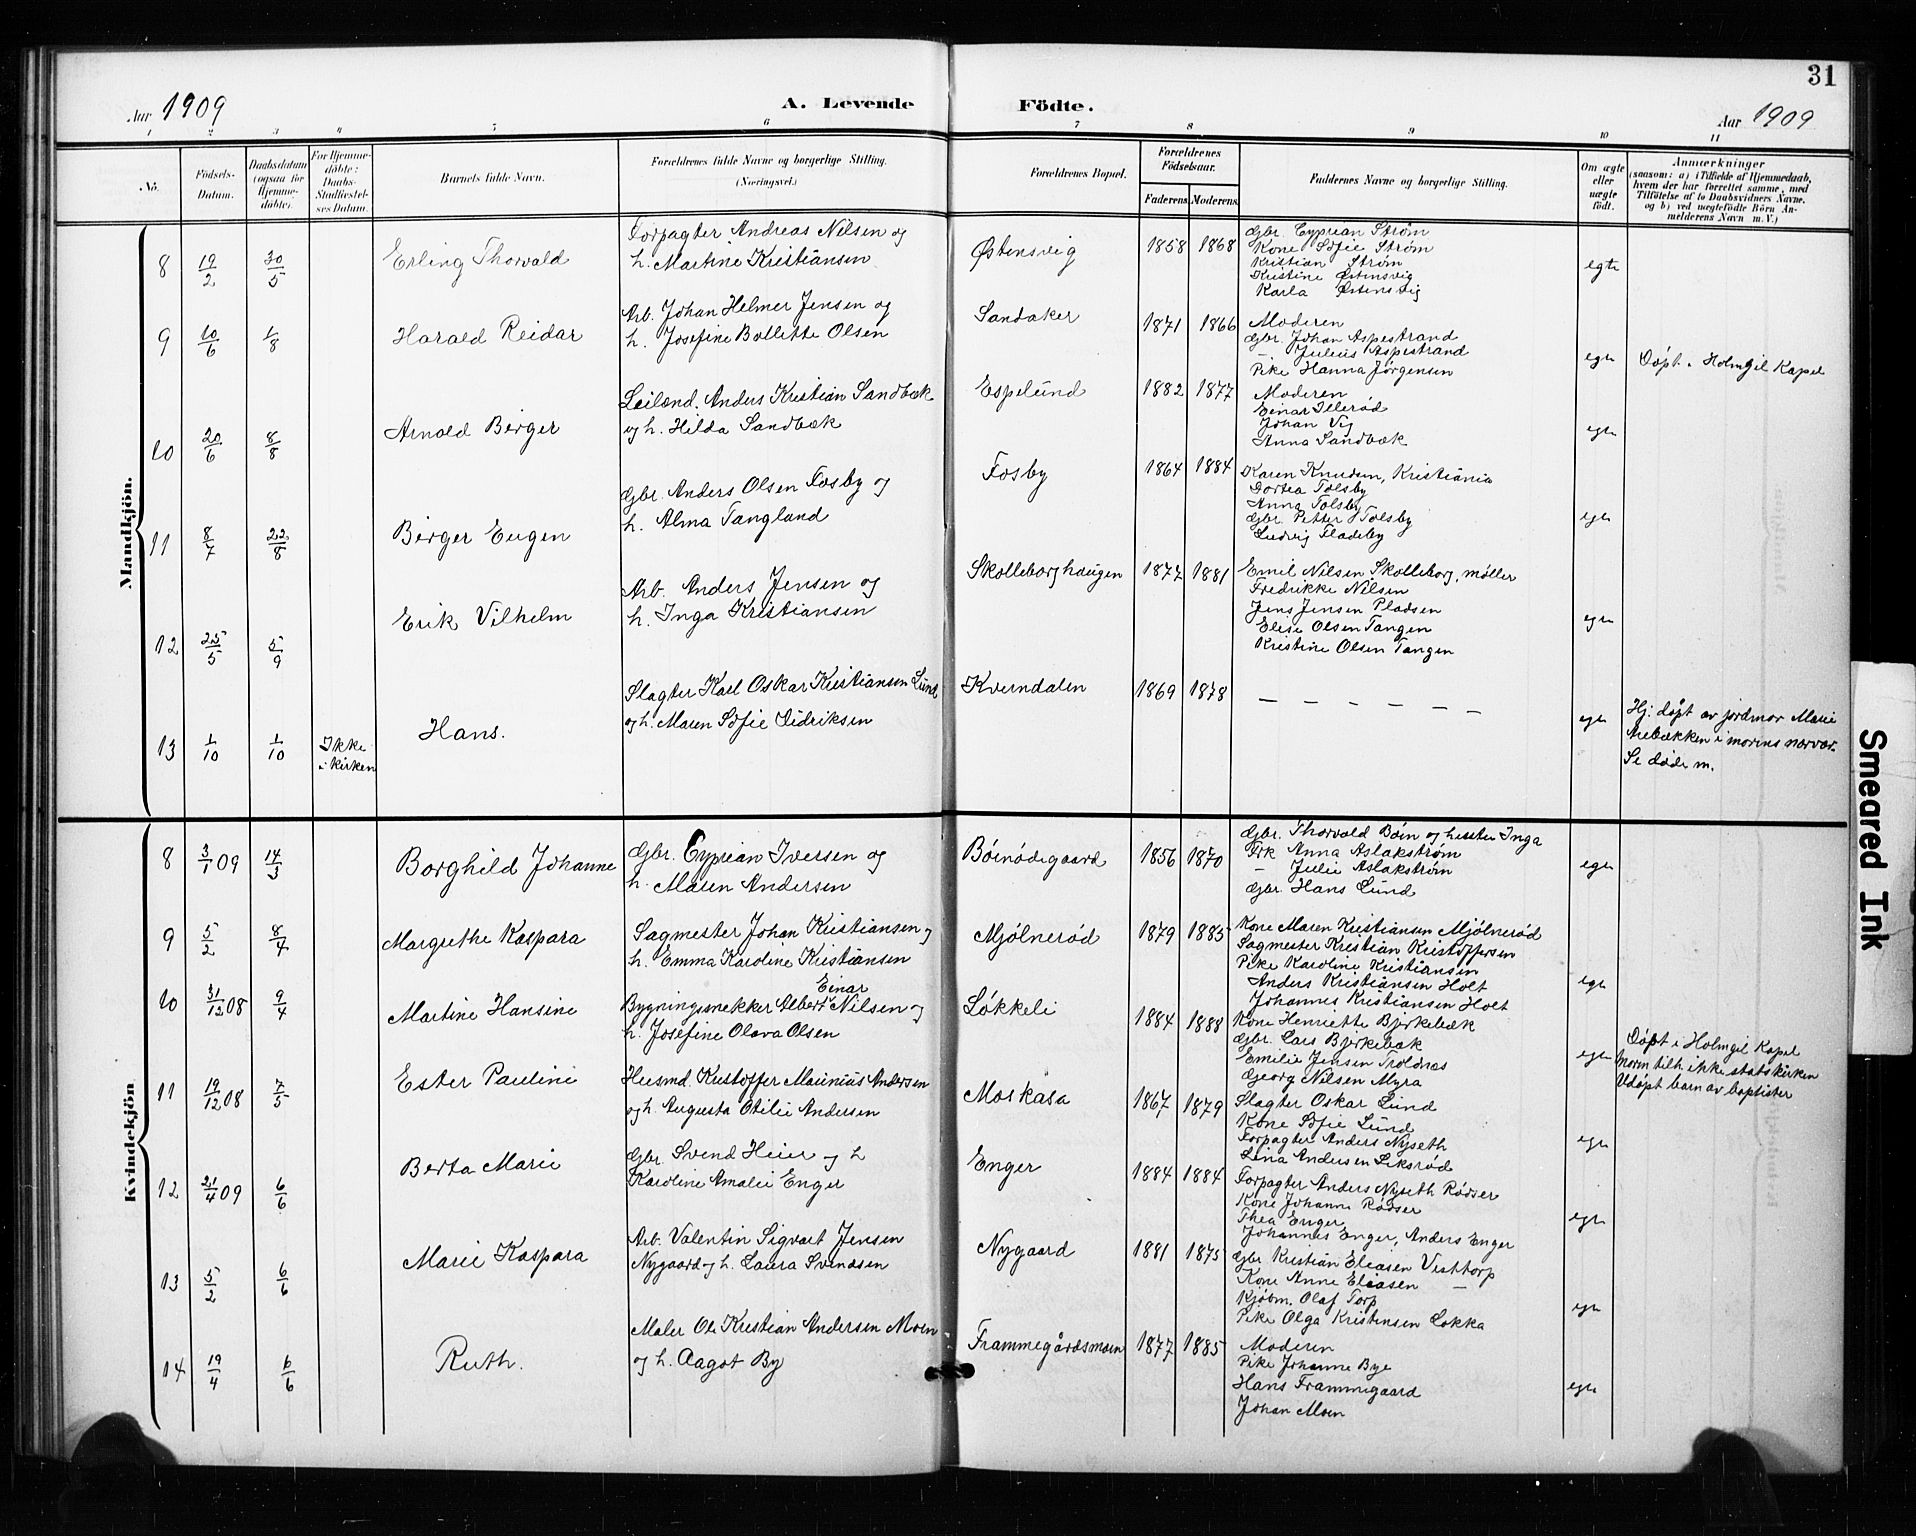 31
Aar 1909
A. Levende Födte.
Aar 1909
1 2 3 4 5 6 7 8 9 10 11
No.
Fødsels-Datum.
Daabsdatum (ogsaa for Hjemme-døbte).
For Hjemme-døbte: Daabs-Stadfæstel-ses Datum.
Barnets fulde Navn.
Forældrenes fulde Navne og borgerlige Stilling. (Næringsvei.)
Forældrenes Bopæl.
Forældrenes Fødselsaar.
Faderens Moderens
Faddernes Navne og borgerlige Stilling.
Om ægte eller uægte født.
Anmærkninger
(saasom: a) i Tilfælde af Hjemmedaab, hvem der har forrettet samme, med Tilføielse af to Daabsvidners Navne. og b) ved uægtefødte Börn An-melderens Navn m. V.)
Mandkjön.
8 19/2 30/5 Erling Thorvald
Forpagter Andreas Nilsen og
h. Martine Kristiansen
Østensvig 1858 1868
Gbr. Cyprian Strøm
Kone Sofie Strøm
Kristian Strøm
Kristine Østensvig
Karla Østensvig
egte
9 10/6 1/8 Harald Reidar
Arb. Johan Helmer Jensen og
h. Josefine Bollette Olsen
Sandaker 1871 1866
Moderen
Gbr. Johan Aspestrand
— Julius Aspestrand
Pike Hanna Jørgensen
egte
Døpt i Holmgil Kapel
10 20/6 8/8 Arnold Birger
Leilænd. Anders Kristian Sandbæk
og h. Hilda Sandbæk
Espelund 1882 1877
Moderen
Einar Illerød
Johan Vig
Anna Sandbæk
egte
11 8/7 22/8 Birger Eugen
Gbr. Anders Olsen Fosby og
h. Alma Tangland
Fosby 1864 1884
Karen Knudsen, Kristiania
Dortea Tolsby
Anna Tolsby
Gbr. Petter Tolsby
Ludvig Fladeby
egte
12 25/5 5/9 Erik Vilhelm
Arb. Anders Jensen og
h. Inga Kristiansen
Skolleborghaugen 1877 1881
Emil Nilsen Skolleborg, møller
Fredrikke Nilsen
Jens Jensen Pladsen
Elise Olsen Tangen
Kristine Olsen Tangen
egte
13 1/10 1/10 Ikke i kirken Hans.
Slagter Karl Oskar Kristiansen Lund
og h. Maren Sofie Didriksen
Kverndalen 1869 1878
— — — — — —
egte
Hj. døpt av jordmor Marie
Arebækken i morens nærvær.
Se døde m.
Kvindekjön
8 3/1 09 14/3 Borghild Johanne
Gbr. Cyprian Iversen og
h. Maren Andersen
Bøinødegaard 1856 1870
Gbr. Thorvald Bøin og hustru Inga
Frk Anna Aslakstrøm
— Julie Aslakstrøm
Gbr. Hans Lund
egte
9 5/2 8/4 Margrethe Kaspara
Sagmester Johan Kristiansen og
h. Emma Karoline Kristiansen
Mjølnerød 1879 1885
Kone Maren Kristiansen Mjølnerød
Sagmester Kristian Kristoffersen
Pike Karoline Kristiansen
Anders Kristiansen Holt
Johannes Kristiansen Holt
egte
10 31/12 08 9/4 Martine Hansine
Einar
Bygningssnekker Albert Nilsen og
h. Josefine Olava Olsen
Løkkeli 1884 1888
Kone Henriette Bjerkebæk
Gbr. Lars Bjerkebæk
Emilie Jensen Troldnæs
Georg Nilsen Myra
egte
Døpt i Holmgil Kapel
Moren tilh. ikke statskirken
Udøpt barn av baptister
11 19/12 08 7/5 Ester Pauline
Husmd. Kristoffer Maurinius Andersen
og h. Augusta Otilie Andersen
Moskasa 1867 1879
Slagter Oskar Lund
Kone Sofie Lund
Forpagter Anders Nyseth
Lina Andersen Liksrød
egte
12 21/4 09 6/6 Berta Marie
Gbr. Svend Heier og h
Karoline Amalie Enger
Enger 1884 1884
Forpagter Anders Nyseth Rødser
Kone Johanne Rødser
Thea Enger
Johannes Enger, Anders Enger
egte
13 5/2 6/6 Marie Kaspara
Arb. Valentin Sigvart Jensen
Nygaard og h. Laura Svendsen
Nygaard 1881 1875
Gbr Kristian Eliasen Visttorp
Kone Anne Eliasen —
Kjøbm. Olaf Torp
Pike Olga Kristensen Løkka
egte
14 19/4 6/6 Ruth.
Maler Ole Kristian Andersen Moen
og h. Aagot By
Frammegårdsmoen 1877 1885
Moderen
Pike Johanne Bye
Hans Frammegaard
Johan Moen
egte
Smeared Ink